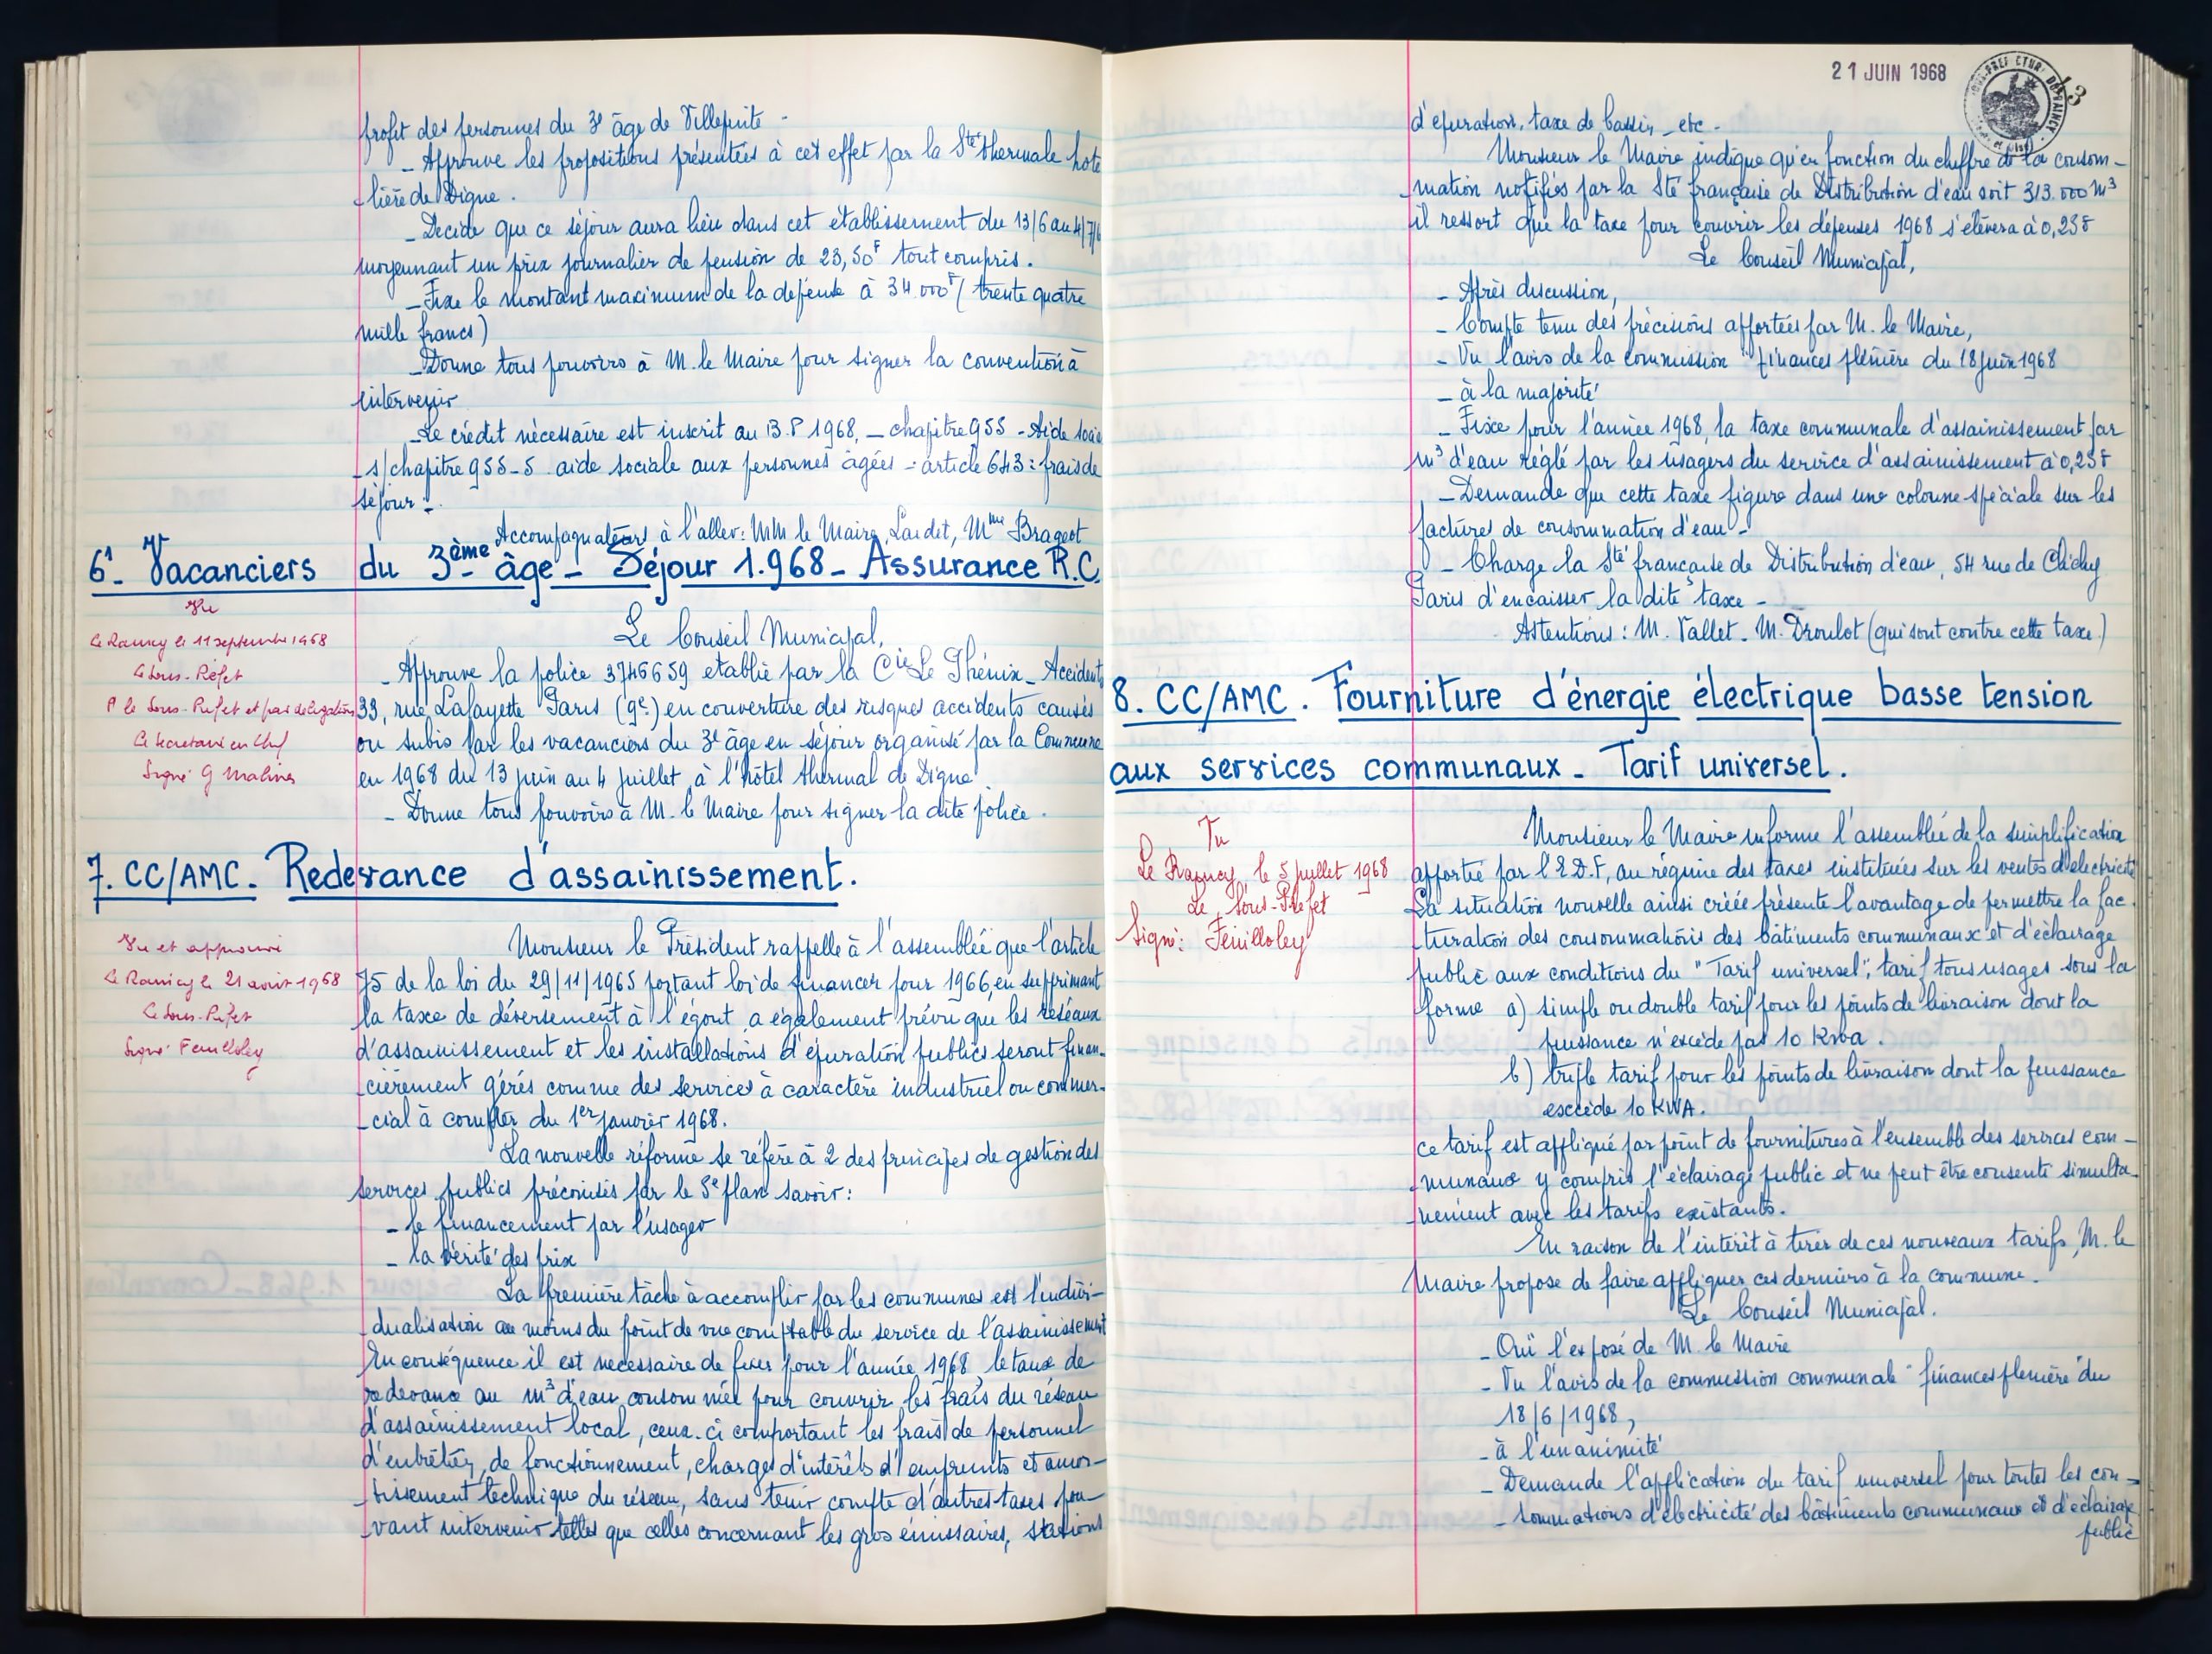 profit des personnes du 3e âge de Villepinte -
_ Approuve les propositions présentées à cet effet par la Sté thermale hote
_lière de Digne.
_ Decide que ce séjour aura lieu dans cet établissement du 13/6 au 4/7/6
moyennant un prix journalier de pension de 23,50F tout compris.
_ Fixe le montant maximum de la depense à 34.000F (trente quatre
mille francs)
_ Donne tous pouvoirs à M. le Maire pour signer la convention à
intervenir
_ Le crédit nécessaire est inscrit au B.P 1968, _ chapitre 955 - Aide socia
_ s/chapitre 955-5 aide sociale aux personnes agées - article 643 : frais de
séjour :
Accompagnateurs à l'aller: MM le Maire, Laudet, Mme Brageot
6 - Vacanciers du 3ème âge - Séjour 1.968 - Assurance R.C.
Vu
Le Raincy le 11 septembre 1968
Le Sous-Préfet
P le Sous-Prefet et par délégation
Le Secretaire en Chef
Signé G Malines
Le Conseil Municipal,
_ Approuve la police 3746659 etablie par la Cie Le Phénix _ Accidents
33, rue Lafayette Paris (9e) en couverture des risques accidents causés
ou subis par les vacanciers du 3e âge en séjour organisé par la Commune
en 1968 du 13 juin au 4 juillet à l'hôtel thermal de Digne
_ Donne tous pouvoirs à M. le Maire pour signer la dite police.
7. CC/AMC. Redevance d'assainissement.
Vu et approuvé
Le Raincy le 21 août 1968
Le Sous-Préfet
Signé Feuilloley
Monsieur le Président rappelle à l'assemblée que l'article
75 de la loi du 29/11/1965 portant loi de finances pour 1966, en supprimant
la taxe de déversement à l'égout, a également prévu que les réseaux
d'assainissement et les installations d'épuration publics seront finan-
_cièrement gérés comme des services à caractère industriel ou commer-
_cial à compter du 1er janvier 1968.
La nouvelle réforme se réfère à 2 des principes de gestion des
services publics préconisés par le 5e plan savoir :
_ le financement par l'usager
_ la vérité des prix
La première tâche à accomplir par les communes est l'indivi-
_dualisation au moins du point de vue comptable du service de l'assainissement
En conséquence il est necessaire de fixer pour l'année 1968, le taux de
redevance au m3 d'eau consommée pour couvrir les frais du réseau
d'assainissement local, ceux-ci comportant les frais de personnel
d'entretien, de fonctionnement, charges d'intérêts d'emprunts et amor-
_tissement technique du réseau, sans tenir compte d'autres taxes pou-
_vant intervenir telles que celles concernant les gros émissaires, stations
21 JUIN 1968
3
d'epuration, taxe de bassin, etc -
Monsieur le Maire indique qu'en fonction du chiffre de la consom-
_mation notifiée par la Sté française de Distribution d'eau soit 313.000 m3
il ressort que la taxe pour couvrir les dépenses 1968 s'élèvera à 0,23F
Le Conseil Municipal,
_ Après discussion,
_ Compte tenu des précisions apportées par M. le Maire,
_ Vu l'avis de la commission "finances plénière du 18 juin 1968
_ à la majorité
_ Fixe pour l'année 1968, la taxe communale d'assainissement par
m3 d'eau réglé par les usagers du service d'assainissement à 0,23F
_ Demande que cette taxe figure dans une colonne spéciale sur les
factures de consommation d'eau -
_ Charge la Sté francaise de Distribution d'eau, 54 rue de Clichy
Paris d'encaisser la dite taxe -
Astentions : M. Vallet - M. Droulot (qui sont contre cette taxe.)
8. CC/AMC. Fourniture d'énergie électrique basse tension
aux services communaux - Tarif universel.
Vu
Le Raincy le 5 juillet 1968
Le Sous-Préfet
Signé : Feuilloley
Monsieur le Maire informe l'assemblée de la simplification
apportée par l'E.D.F, au régime des taxes instituées sur les ventes d'electricité
La situation nouvelle ainsi créée présente l'avantage de permettre la fac
_turation des consommations des bâtiments communaux et d'éclairage
public aux conditions du "Tarif universel", tarif tous usages sous la
forme a) simple ou double tarif pour les points de livraison dont la
puissance n'excède pas 10 Kwa.
b) triple tarif pour les points de livraison dont la puissance
excède 10 KWA.
ce tarif est appliqué par point de fournitures à l'ensemble des services com-
_munaux y compris l'éclairage public et ne peut être consenti simulta-
_nément avec les tarifs existants.
En raison de l'intérêt à tirer de ces nouveaux tarifs, M. le
Maire propose de faire appliquer ces derniers à la commune.
Le Conseil Municipal.
_ Ouï l'exposé de M. le Maire
_ Vu l'avis de la commission communale "finances plenière" du
18/6/1968,
_ à l'unanimité
_ Demande l'application du tarif universel pour toutes les con-
_sommations d'électricité des bâtiments communaux et d'éclairage
public